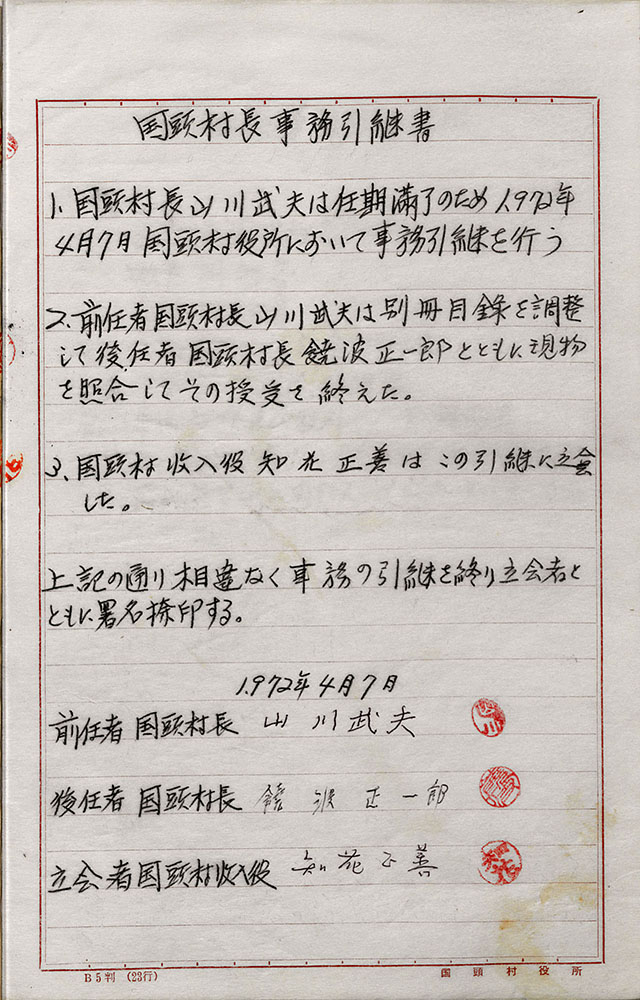 国頭村長事務引継書
1、国頭村長山川武夫は任期満了のため1,972年
4月7日国頭村役所において事務引継を行う
2、前任者国頭村長山川武夫は別冊目録を調整
して後任者国頭村長饒波正一郎とともに現物
を照合してその授受を終えた。
3、国頭村収入役知花正善はこの引継に立会
した。
上記の通り相違なく事務の引継を終り立会者と
ともに署名捺印する。
1,972年4月7日
前任者国頭村長 山川武夫
後任者国頭村長 饒波正一郎
立会者国頭村収入役 知花正善
B5判 (23行) 国頭村役所